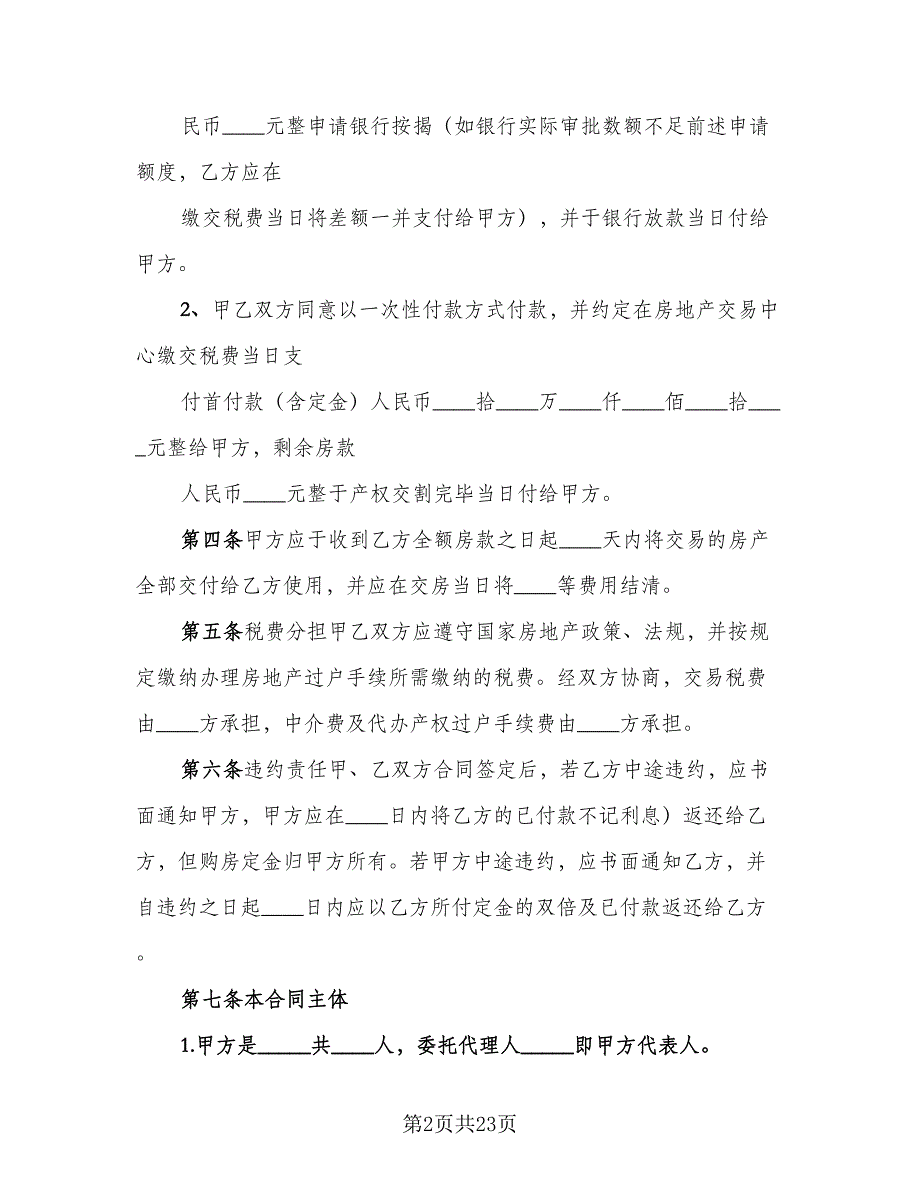 民币____元整申请银行按揭（如银行实际审批数额不足前述申请
额度，乙方应在
缴交税费当日将差额一并支付给甲方），并于银行放款当日付给
甲方。
2、甲乙双方同意以一次性付款方式付款，并约定在房地产交易中
心缴交税费当日支
付首付款（含定金）人民币____拾____万____仟____佰____拾___
_元整给甲方，剩余房款
人民币____元整于产权交割完毕当日付给甲方。
第四条甲方应于收到乙方全额房款之日起____天内将交易的房产
全部交付给乙方使用，并应在交房当日将____等费用结清。
第五条税费分担甲乙双方应遵守国家房地产政策、法规，并按规
定缴纳办理房地产过户手续所需缴纳的税费。经双方协商，交易税费
由____方承担，中介费及代办产权过户手续费由____方承担。
第六条违约责任甲、乙双方合同签定后，若乙方中途违约，应书
面通知甲方，甲方应在____日内将乙方的已付款不记利息）返还给乙
方，但购房定金归甲方所有。若甲方中途违约，应书面通知乙方，并
自违约之日起____日内应以乙方所付定金的双倍及已付款返还给乙方
。
第七条本合同主体
1.甲方是_____共____人，委托代理人_____即甲方代表人。
第2页共23页